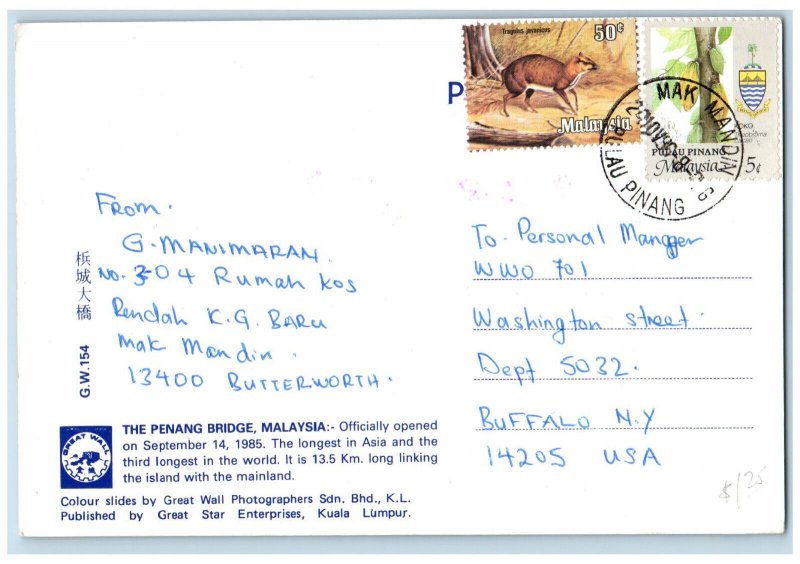 Tragulus javanicus
50¢
Malaysia
KOKO
PULAU PINANG
Malaysia 5¢
MAK MANDIN
PULAU PINANG
P
From.
G. MANIMARAN.
No. 304 Rumah Kos
Rendah K.G. BARU
Mak Mandin.
13400 BUTTERWORTH.
To. Personal Manager
WWO 701
Washington street.
Dept 5032.
BUFFALO N.Y
14205 USA
檳城大橋
G.W.154
GREAT WALL
THE PENANG BRIDGE, MALAYSIA:- Officially opened
on September 14, 1985. The longest in Asia and the
third longest in the world. It is 13.5 Km. long linking
the island with the mainland.
Colour slides by Great Wall Photographers Sdn. Bhd., K.L.
Published by Great Star Enterprises, Kuala Lumpur.